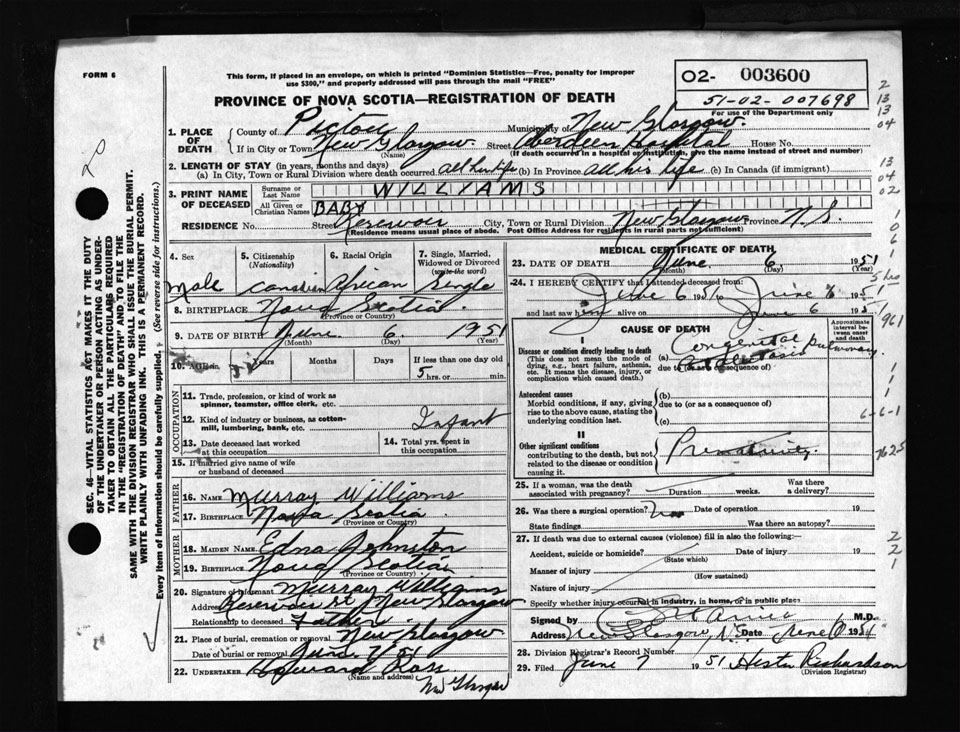 FORM 6
This form, if placed in an envelope, on which is printed "Dominion Statistics—Free, penalty for improper
use $300," and properly addressed will pass through the mail "FREE"
O2- 003600
51-02-007698
For use of the Department only
PROVINCE OF NOVA SCOTIA—REGISTRATION OF DEATH
20
2
13
13
04
13
04
02
1. PLACE OF DEATH
County of Pictou Municipality of New Glasgow.
If in City or Town New Glasgow. Street Aberdeen Hospital House No.
(Name) (If death occurred in a hospital or institution, give the name instead of street and number)
2. LENGTH OF STAY (in years, months and days)
(a) In City, Town or Rural Division where death occurred all his life (b) In Province all his life (b) In Canada (if immigrant)
3. PRINT NAME OF DECEASED
Surname or Last Name WILLIAMS
All Given or Christian Names BABY
RESIDENCE No. Street Reservoir City, Town or Rural Division New Glasgow Province N.S.
(Residence means usual place of abode. Post Office Address for residents in rural parts not sufficient)
4. Sex Male
5. Citizenship (Nationality) Canadian
6. Racial Origin African
7. Single, Married, Widowed or Divorced (write the word) Single
8. BIRTHPLACE Nova Scotia
(Province or Country)
9. DATE OF BIRTH June 6. 1951
(Month) (Day) (Year)
10. AGE in Years Months Days If less than one day old
5 hrs. or min.
OCCUPATION
11. Trade, profession, or kind of work as
spinner, teamster, office clerk, etc.
12. Kind of industry or business, as cotton-
mill, lumbering, bank, etc. Infant
13. Date deceased last worked
at this occupation
14. Total yrs. spent in
this occupation
15. If married give name of wife
or husband of deceased
FATHER
16. NAME Murray Williams
17. BIRTHPLACE Nova Scotia
(Province or Country)
MOTHER
18. MAIDEN NAME Edna Johnston
19. BIRTHPLACE Nova Scotia
(Province or Country)
20. Signature of Informant Murray Williams
Address Reservoir St New Glasgow
Relationship to deceased Father
21. Place of burial, cremation or removal New Glasgow
Date of burial or removal June 7/51
22. UNDERTAKER Howard Ross
(Name and address)
New Glasgow
MEDICAL CERTIFICATE OF DEATH
23. DATE OF DEATH June 6. 1951
(Month) (Day) (Year)
24. I HEREBY CERTIFY that I attended deceased from:
June 6 1951 to June 6 1951
and last saw him alive on June 6 195
CAUSE OF DEATH
Approximate interval between onset and death
I
Disease or condition directly leading to death
(This does not mean the mode of dying, e.g., heart failure, asthenia, etc. It means the disease, injury, or complication which caused death.)
(a) Congenital pulmonary
atelectasis
due to (or as a consequence of)
Antecedent causes
Morbid conditions, if any, giving rise to the above cause, stating the underlying condition last.
(b)
due to (or as a consequence of)
(c)
II
Other significant conditions
contributing to the death, but not related to the disease or condition causing it.
Prematurity
25. If a woman, was the death
associated with pregnancy? Duration weeks. Was there
a delivery?
26. Was there a surgical operation? no Date of operation 19
State findings Was there an autopsy?
27. If death was due to external causes (violence) fill in also the following:—
Accident, suicide or homicide? Date of injury 19
(State which)
Manner of injury
(How sustained)
Nature of injury
Specify whether injury occurred in industry, in home, or in public place
Signed by M.D.
Address New Glasgow, N.S. Date June 6 1951
28. Division Registrar's Record Number
29. Filed June 7 1951 Hester Richardson
(Division Registrar)
1
0
6
1
5 hrs
1
961
1
1
1
6-6-1
7625
2
2
1
SEC. 46—VITAL STATISTICS ACT MAKES IT THE DUTY
OF THE UNDERTAKER OR PERSON ACTING AS UNDER-
TAKER TO OBTAIN ALL THE PARTICULARS REQUIRED
IN THE "REGISTRATION OF DEATH" AND TO FILE THE
SAME WITH THE DIVISION REGISTRAR WHO SHALL ISSUE THE BURIAL PERMIT.
WRITE PLAINLY WITH UNFADING INK. THIS IS A PERMANENT RECORD.
Every item of information should be carefully supplied. (See reverse side for instructions.)